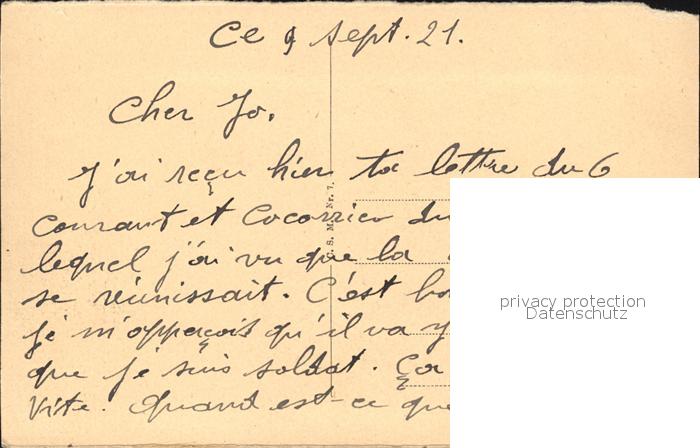 Ce 9 Sept. 21.
Cher Jo.
J'ai reçu hier ta lettre du 6
courant et Cocorico du
lequel j'ai vu que la
se réunissait. C'est
je m'apperçois qu'il va y
que je suis soldat. Ça
Vite. Quand est-ce que
S. M. Nr. 7.
privacy protection
Datenschutz